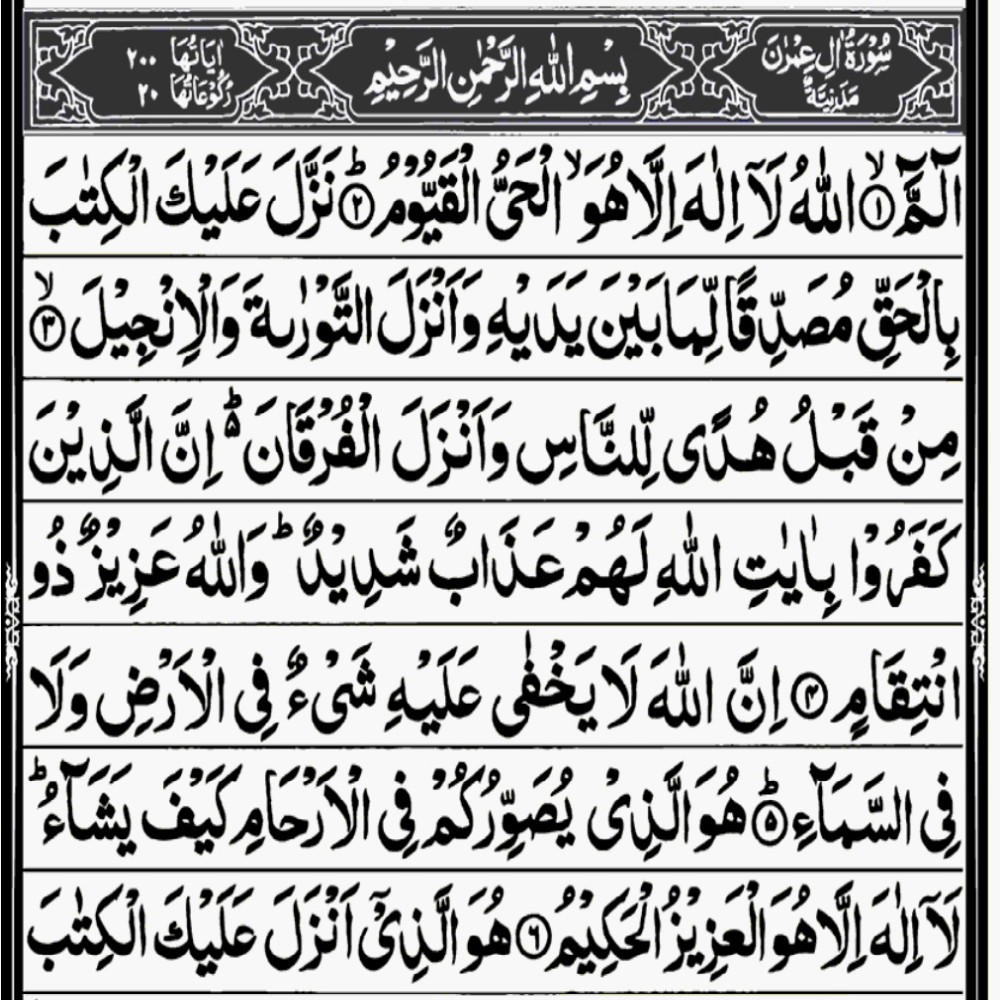 سُوْرَةُ اٰلِ عِمْرٰنَ
مَدَنِيَّةٌ
بِسْمِ اللّٰهِ الرَّحْمٰنِ الرَّحِيْمِ
اٰيَاتُهَا ٢٠٠
رُكُوْعَاتُهَا ٢٠
الٓمّٓ ۙ﴿۱﴾ اللّٰهُ لَاۤ اِلٰهَ اِلَّا هُوَ ۙ الْحَىُّ الْقَيُّوْمُ ؕ﴿۲﴾ نَزَّلَ عَلَيْكَ الْكِتٰبَ
بِالْحَقِّ مُصَدِّقًا لِّمَا بَيْنَ يَدَيْهِ وَاَنْزَلَ التَّوْرٰىةَ وَالْاِنْجِيْلَ ۙ﴿۳﴾
مِنْ قَبْلُ هُدًى لِّلنَّاسِ وَاَنْزَلَ الْفُرْقَانَ ؕ۬ اِنَّ الَّذِيْنَ
كَفَرُوْا بِاٰيٰتِ اللّٰهِ لَهُمْ عَذَابٌ شَدِيْدٌ ؕ وَاللّٰهُ عَزِيْزٌ ذُو
انْتِقَامٍ ﴿۴﴾ اِنَّ اللّٰهَ لَا يَخْفٰى عَلَيْهِ شَىْءٌ فِى الْاَرْضِ وَلَا
فِى السَّمَآءِ ؕ﴿۵﴾ هُوَ الَّذِىْ يُصَوِّرُكُمْ فِى الْاَرْحَامِ كَيْفَ يَشَآءُ ؕ
لَاۤ اِلٰهَ اِلَّا هُوَ الْعَزِيْزُ الْحَكِيْمُ ﴿۶﴾ هُوَ الَّذِىْۤ اَنْزَلَ عَلَيْكَ الْكِتٰبَ